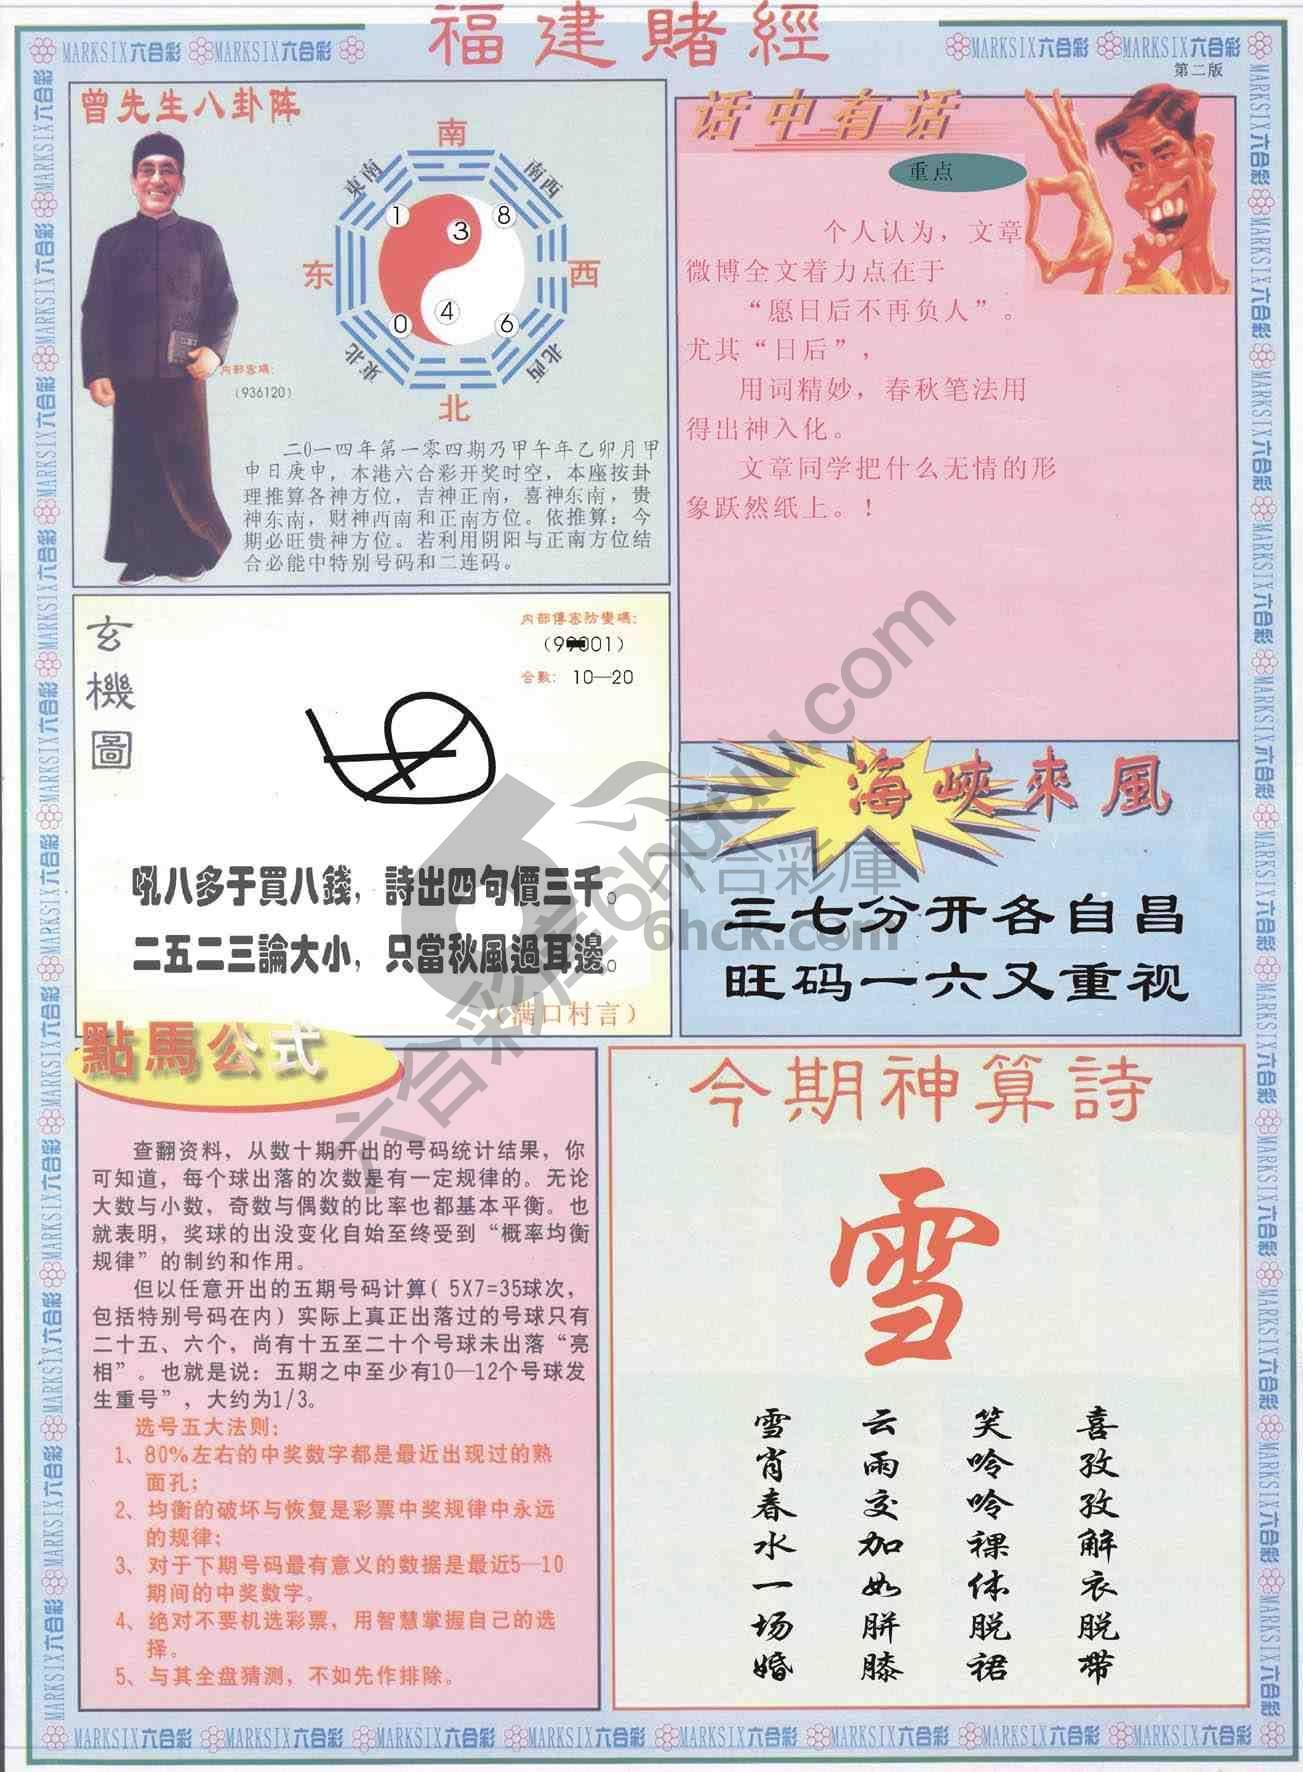 福建賭經
MARKSIX六合彩 MARKSIX六合彩
MARKSIX六合彩 MARKSIX六合彩
第二版
曾先生八卦阵
南
東南
南西
1
8
3
东
西
4
0
6
東北
北西
北
内部密碼:
(936120)
二0一四年第一零四期乃甲午年乙卯月甲
申日庚申,本港六合彩开奖时空,本座按卦
理推算各神方位,吉神正南,喜神东南,贵
神东南,财神西南和正南方位。依推算:今
期必旺贵神方位。若利用阴阳与正南方位结
合必能中特别号码和二连码。
话中有话
重点
个人认为,文章
微博全文着力点在于
“愿日后不再负人”。
尤其“日后”,
用词精妙,春秋笔法用
得出神入化。
文章同学把什么无情的形
象跃然纸上。!
玄機圖
内部傳密防變碼:
合數: 10—20
吼八多于買八錢,詩出四句價三千。
二五二三論大小,只當秋風過耳邊。
(满口村言)
海峽來風
三七分开各自昌
旺码一六又重视
點馬公式
查翻资料,从数十期开出的号码统计结果,你
可知道,每个球出落的次数是有一定规律的。无论
大数与小数,奇数与偶数的比率也都基本平衡。也
就表明,奖球的出没变化自始至终受到“概率均衡
规律”的制约和作用。
但以任意开出的五期号码计算( 5X7=35球次,
包括特别号码在内)实际上真正出落过的号球只有
二十五、六个,尚有十五至二十个号球未出落“亮
相”。也就是说:五期之中至少有10—12个号球发
生重号”,大约为1/3。
选号五大法则:
1、80%左右的中奖数字都是最近出现过的熟
面孔;
2、均衡的破坏与恢复是彩票中奖规律中永远
的规律;
3、对于下期号码最有意义的数据是最近5—10
期间的中奖数字。
4、绝对不要机选彩票,用智慧掌握自己的选
择。
5、与其全盘猜测,不如先作排除。
今期神算詩
雪
喜孜孜解衣脱带
笑吟吟裸体脱裙
云雨交加如胼膝
雪肖春水一场婚
六合彩库6huuu.com
六合彩庫
6hck.com